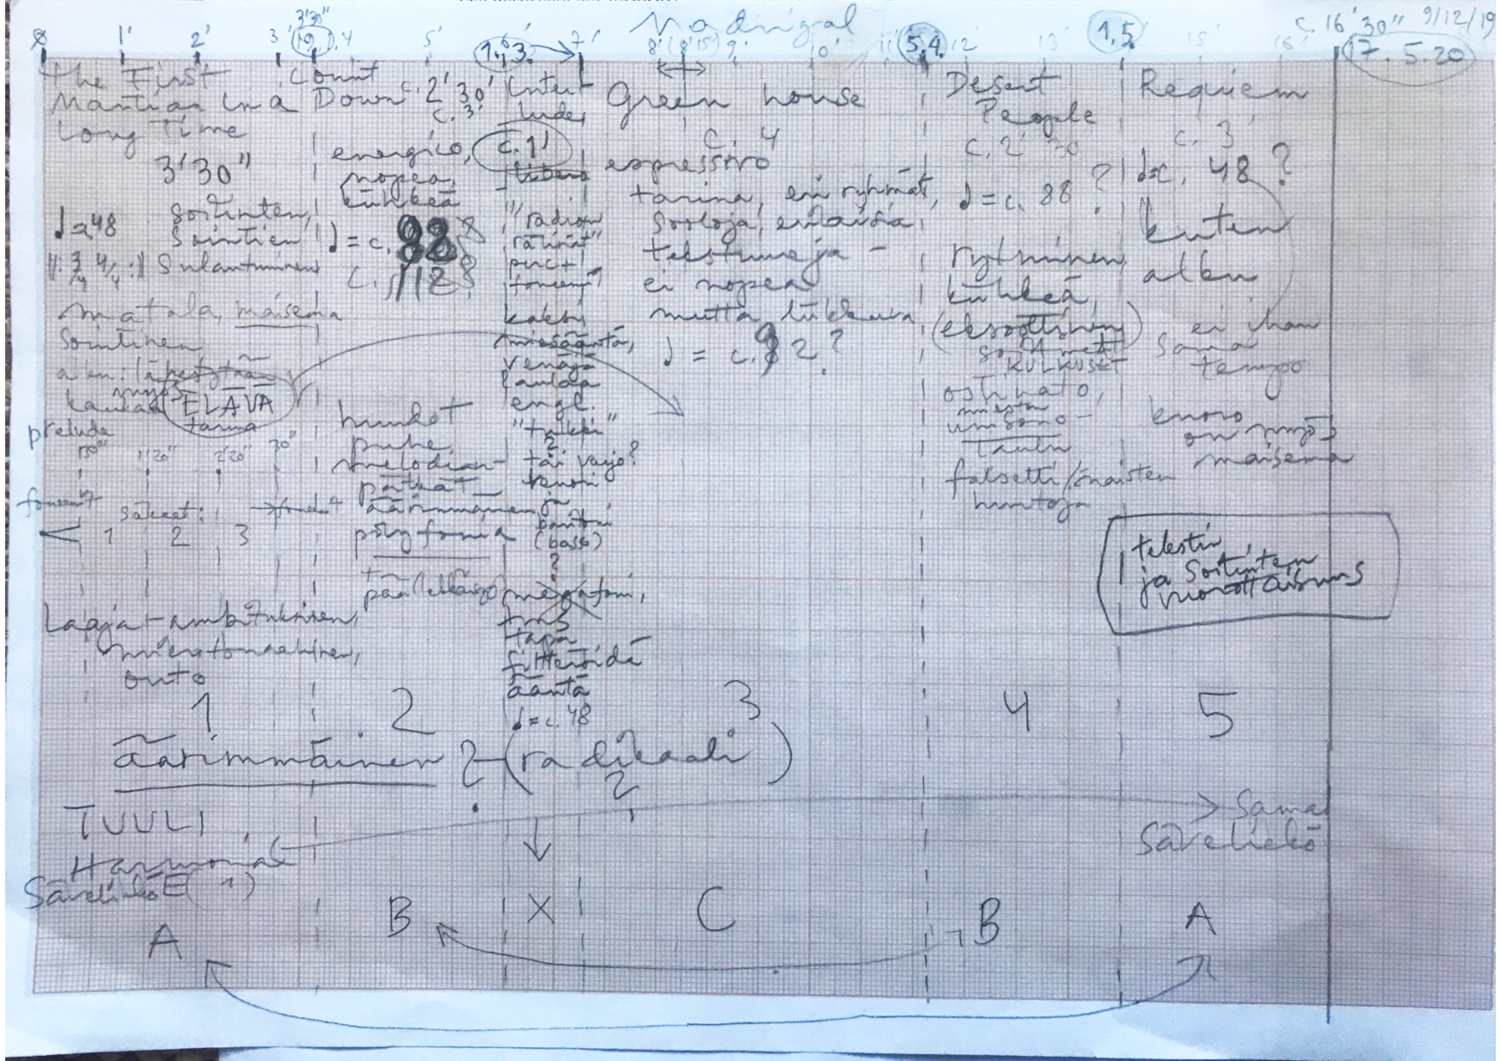 Madrigal
c. 16'30" 9/12/19
3'30"
0 1' 2' 3' 19. 4 5' 1.3. 7' 8' (8'15") 9' 10' 11' 5.4. 12 13' 1.5. 15' 16' 17.5.20
The First
Martian in a
Long Time
3'30"
♩=48
soitinten,
sointien
sulautuminen
matala, maisema
sointinen
ELÄVÄ
tarina
prelude
1'20" 2'20" 30"
säkeet:
1 2 3
Laaja-ambituksinen,
mikrotonaalinen,
outo
1
Count
Down
c. 2'30"
c. 3'
energico,
nopea,
kiihkeä
♩=c. 88
c. 112
huudot
puhe,
melodian-
pätkät
äärimmäinen
polyfonia
päällekkäisyys
2
Inter
lude,
c. 1'
libero
"radion
rätinät"
perc+
kaksi
miesääntä,
venäjä
laulaa
engl.
"trikki"
?
tai varjo?
tenori
ja
baritoni
(basso)
?
megafoni,
tms
tapa
filtteröidä
ääntä
♩=c. 48
Green house
c. 4
espressivo
tarina, eri ryhmät,
sooloja, erilaisia
tekstuureja -
ei nopea
mutta liikkuva
♩ = c. 92?
3
Desert
People
c. 2'30
♩=c. 88?
rytminen,
kiihkeä,
(eksoottinen)
KULKUSET
ostinato,
miesten
unisono-
laulu
falsetti/naisten
huutoja
4
Requiem
c. 3'
♩=c. 48?
kuten
alku
ei ihan
sama
tempo
kuoro
on myös
maisema
tekstin
ja soitinten
vuorottaisuus
5
äärimmäinen ? (radikaali)
?
TUULI
Harmoniat
sama
sävelikkö
Sävelikkö E(1)
A B X C B A